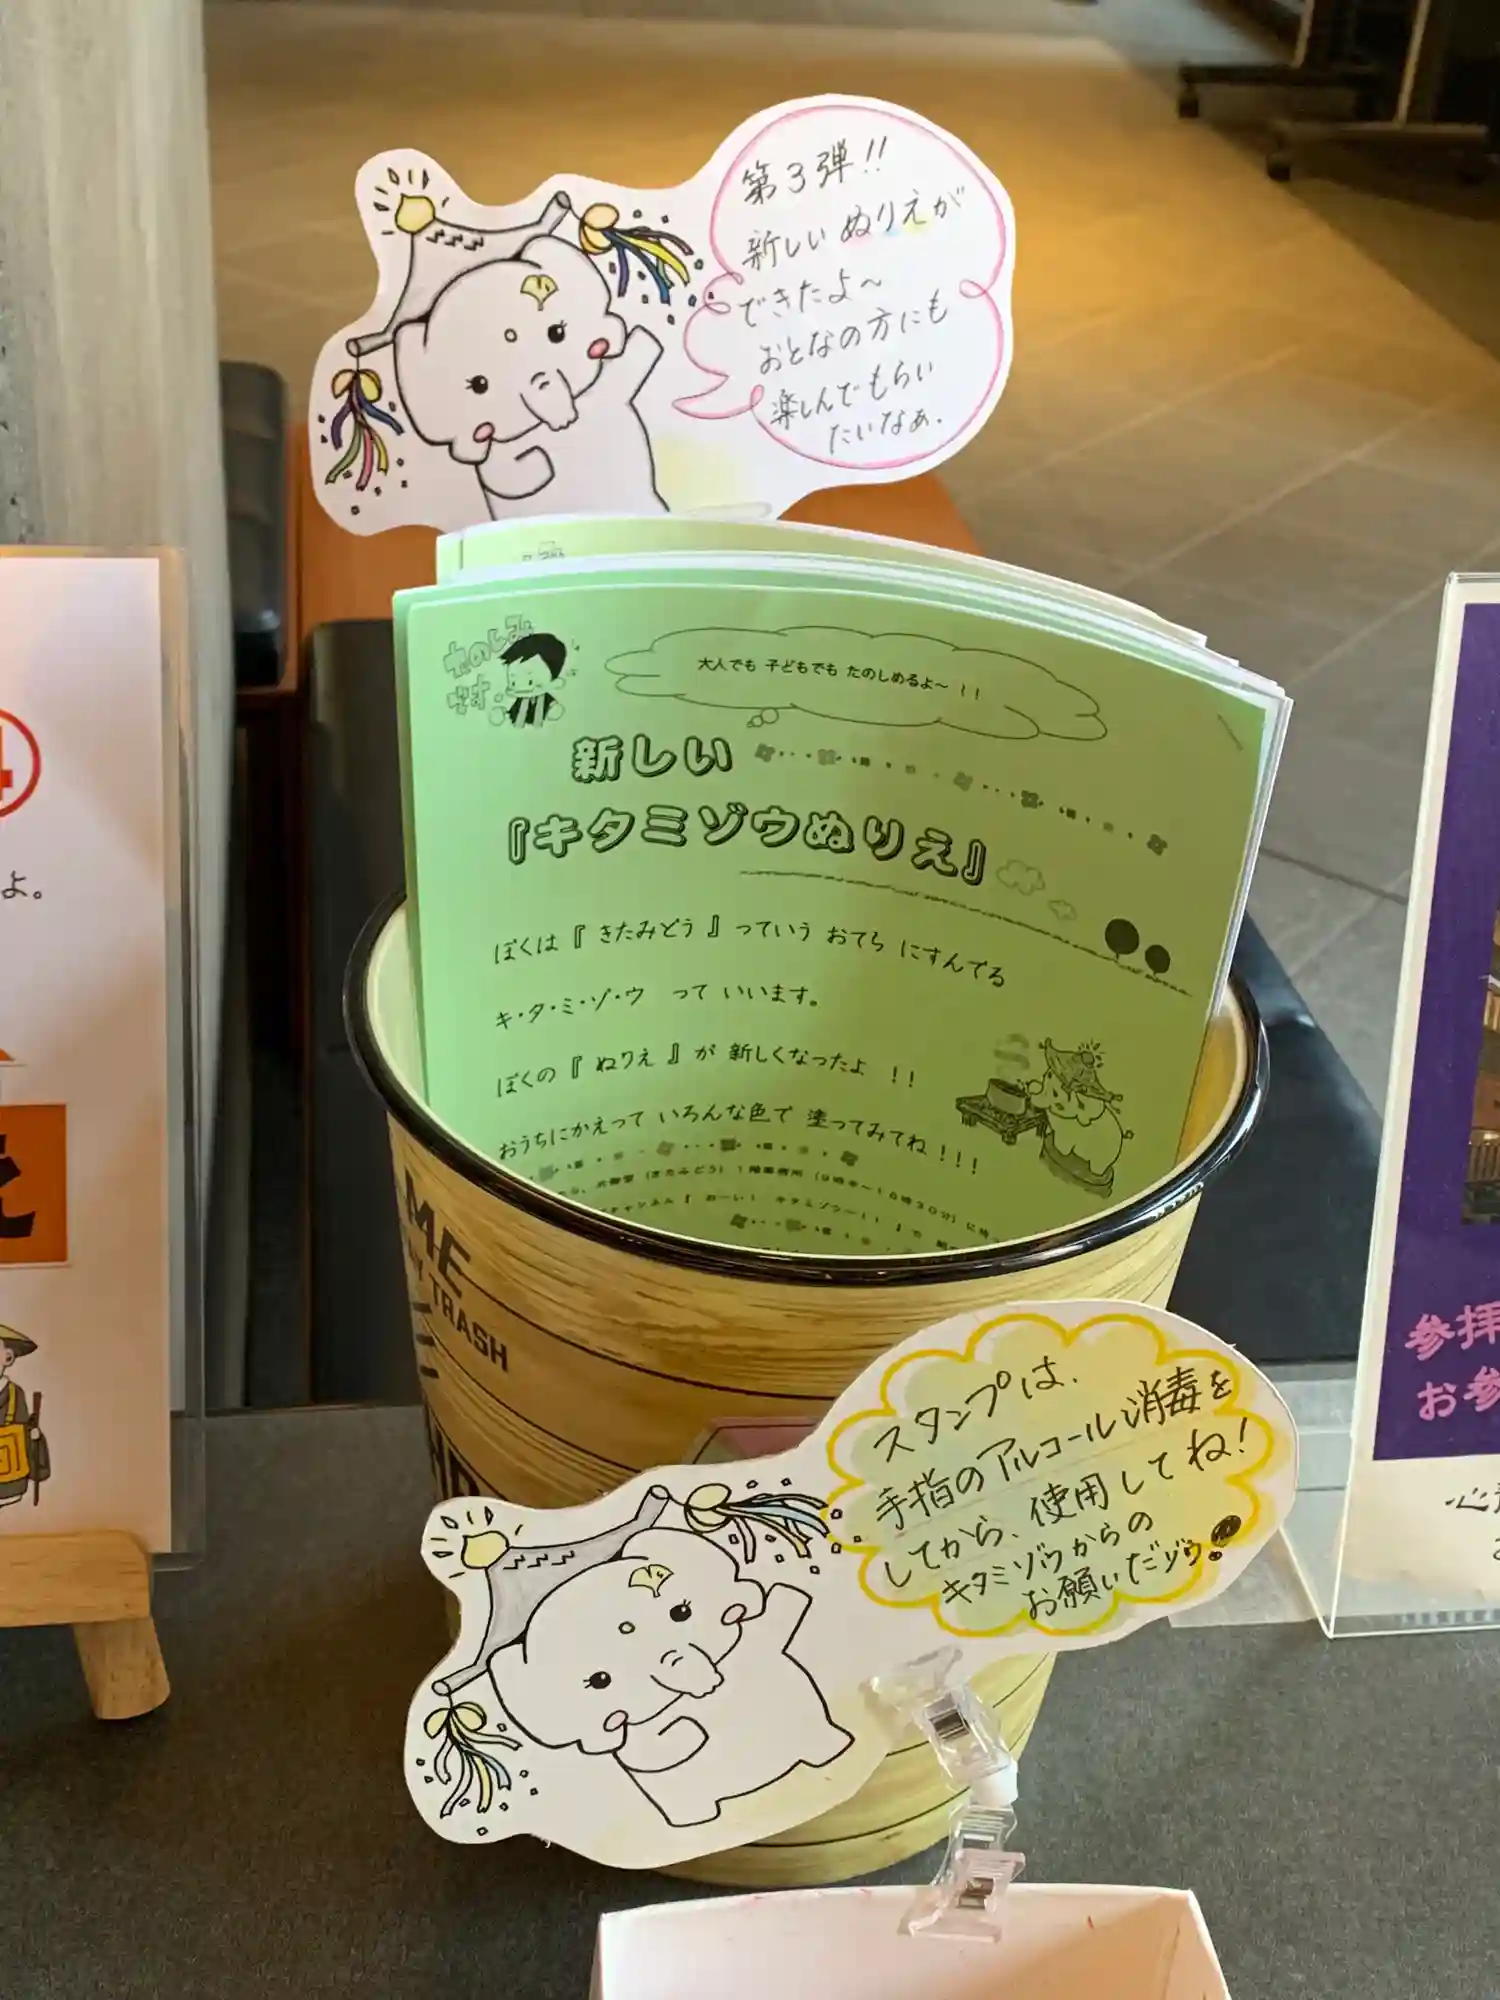 第3弾!!
新しいぬりえが
できたよ〜
おとなの方にも
楽しんでもらい
たいなぁ.
たのしみ
です
大人でも 子どもでも たのしめるよ〜 !!
新しい
『キタミゾウぬりえ』
ぼくは『 きたみどう 』っていう おてら にすんでる
キ・タ・ミ・ゾ・ウ って いいます。
ぼくの『 ぬりえ 』が 新しくなったよ !!
おうちにかえって いろんな色で 塗ってみてね !!!
ME
TRASH
スタンプは、
手指のアルコール消毒を
してから、使用してね!
キタミゾウからの
お願いだゾウ
よ。
参拝
お参